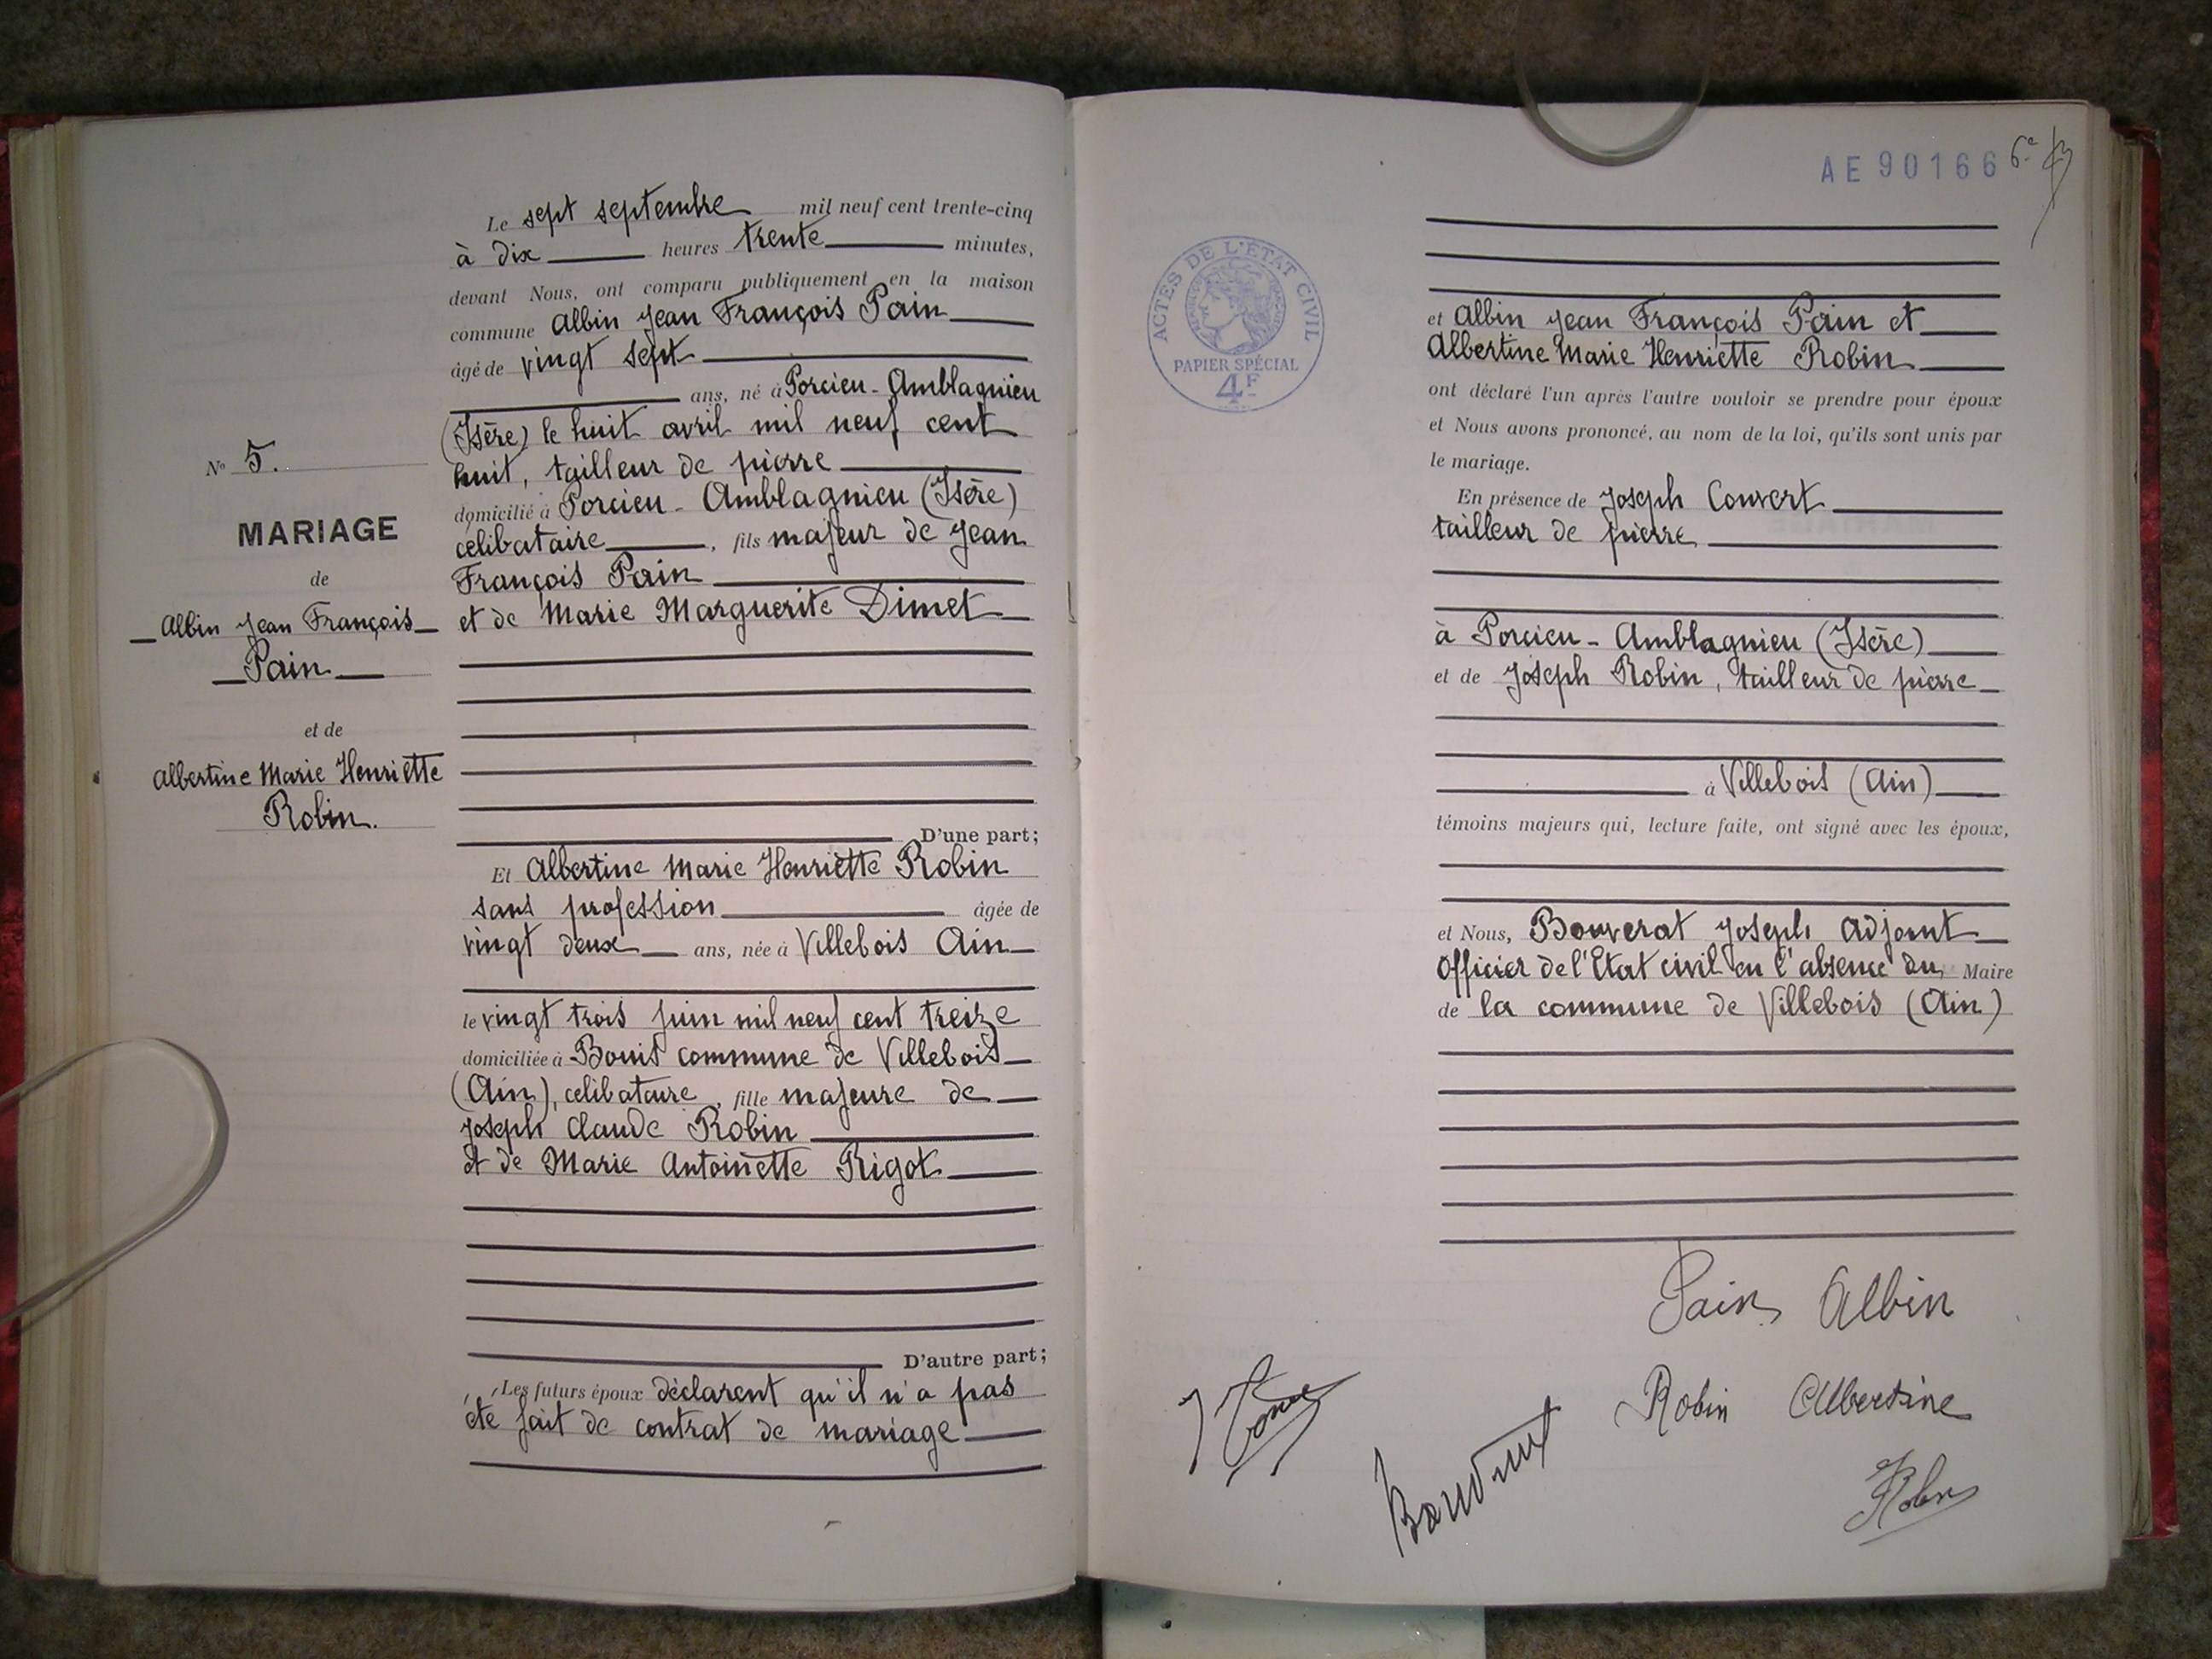 N° 5.
MARIAGE
de
Albin Jean François
Pain
et de
Albertine Marie Henriette
Robin.
Le sept septembre mil neuf cent trente-cinq
à dix heures trente minutes,
devant Nous, ont comparu publiquement en la maison
commune Albin Jean François Pain
âgé de vingt sept
ans, né à Porcieu-Amblagnieu
(Isère) le huit avril mil neuf cent
huit, tailleur de pierre
domicilié à Porcieu-Amblagnieu (Isère)
célibataire, fils majeur de Jean
François Pain
et de Marie Marguerite Dimet
D'une part;
Et Albertine Marie Henriette Robin
sans profession âgée de
vingt deux ans, née à Villebois Ain
le vingt trois juin mil neuf cent treize
domiciliée à Bouis commune de Villebois
(Ain), celibataire, fille majeure de
Joseph Claude Robin
et de Marie Antoinette Rigot
D'autre part;
Les futurs époux déclarent qu'il n'a pas
été fait de contrat de mariage
AE 90166 6e
ACTES DE L'ÉTAT CIVIL
PAPIER SPÉCIAL
4F
et Albin Jean François Pain et
Albertine Marie Henriette Robin
ont déclaré l'un après l'autre vouloir se prendre pour époux
et Nous avons prononcé, au nom de la loi, qu'ils sont unis par
le mariage.
En présence de Joseph Convert
tailleur de pierre
à Porcieu-Amblagnieu (Isère)
et de Joseph Robin, tailleur de pierre
à Villebois (Ain)
témoins majeurs qui, lecture faite, ont signé avec les époux,
et Nous, Bouverat Joseph Adjoint
Officier de l'Etat civil en l'absence du Maire
de la commune de Villebois (Ain)
Pain Albin
Robin Albertine
Robin